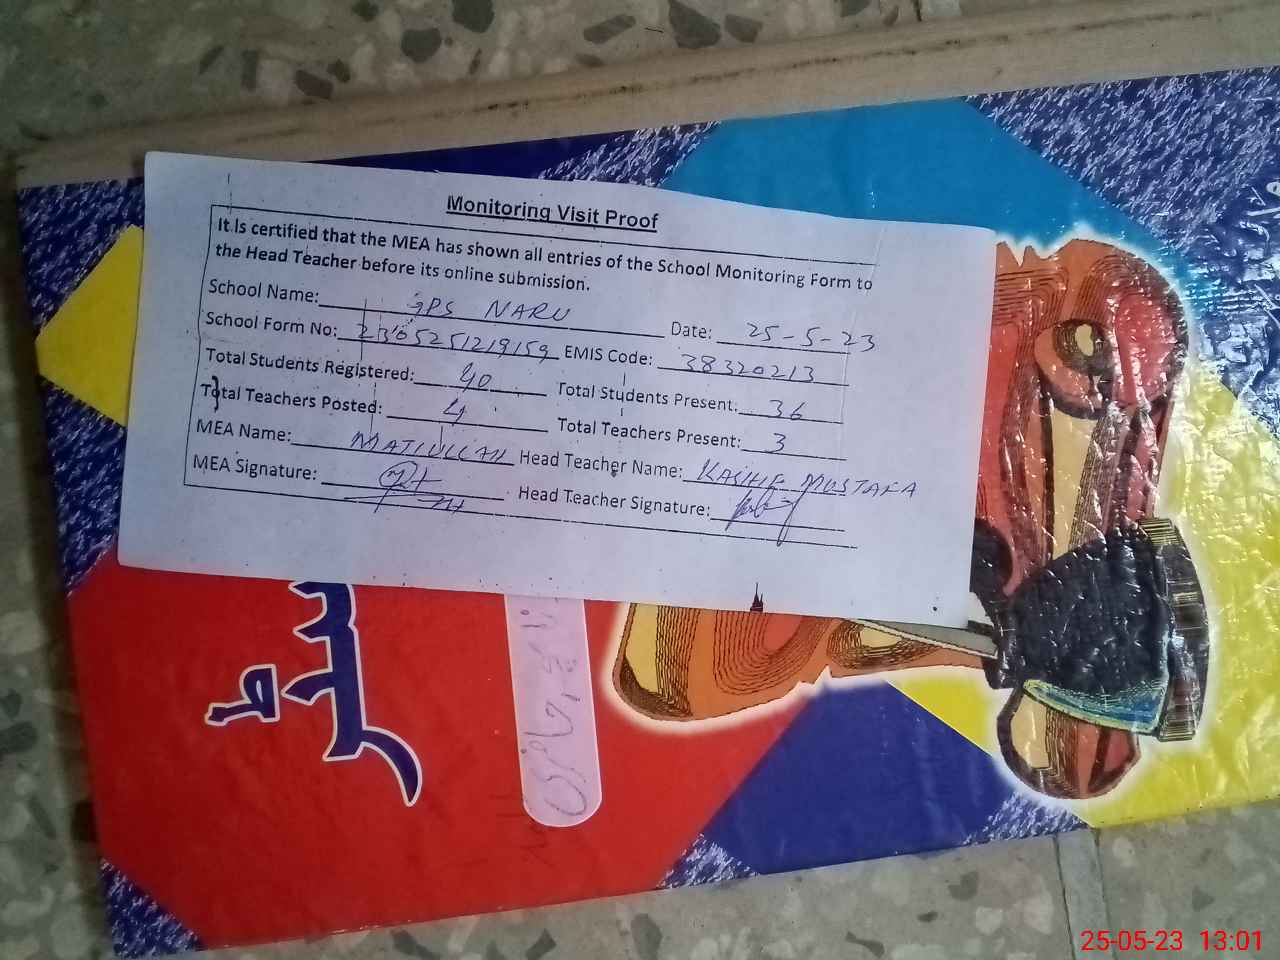 Monitoring Visit Proof
It is certified that the MEA has shown all entries of the School Monitoring Form to
the Head Teacher before its online submission.
School Name: GPS NARU Date: 25-5-23
School Form No: 2305251219159 EMIS Code: 38320213
Total Students Registered: 40 Total Students Present: 36
Total Teachers Posted: 4 Total Teachers Present: 3
MEA Name: MATIULLAH Head Teacher Name: KASHIF MUSTAFA
MEA Signature: Head Teacher Signature:
رجسٹر
25-05-23 13:01